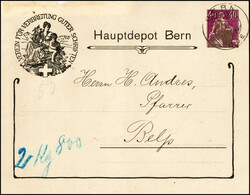 VEREIN FÜR VERBREITUNG GUTER SCHRIFTEN
Hauptdepot Bern
Herrn H. Andres,
Pfarrer
Belp
2 Kg 800